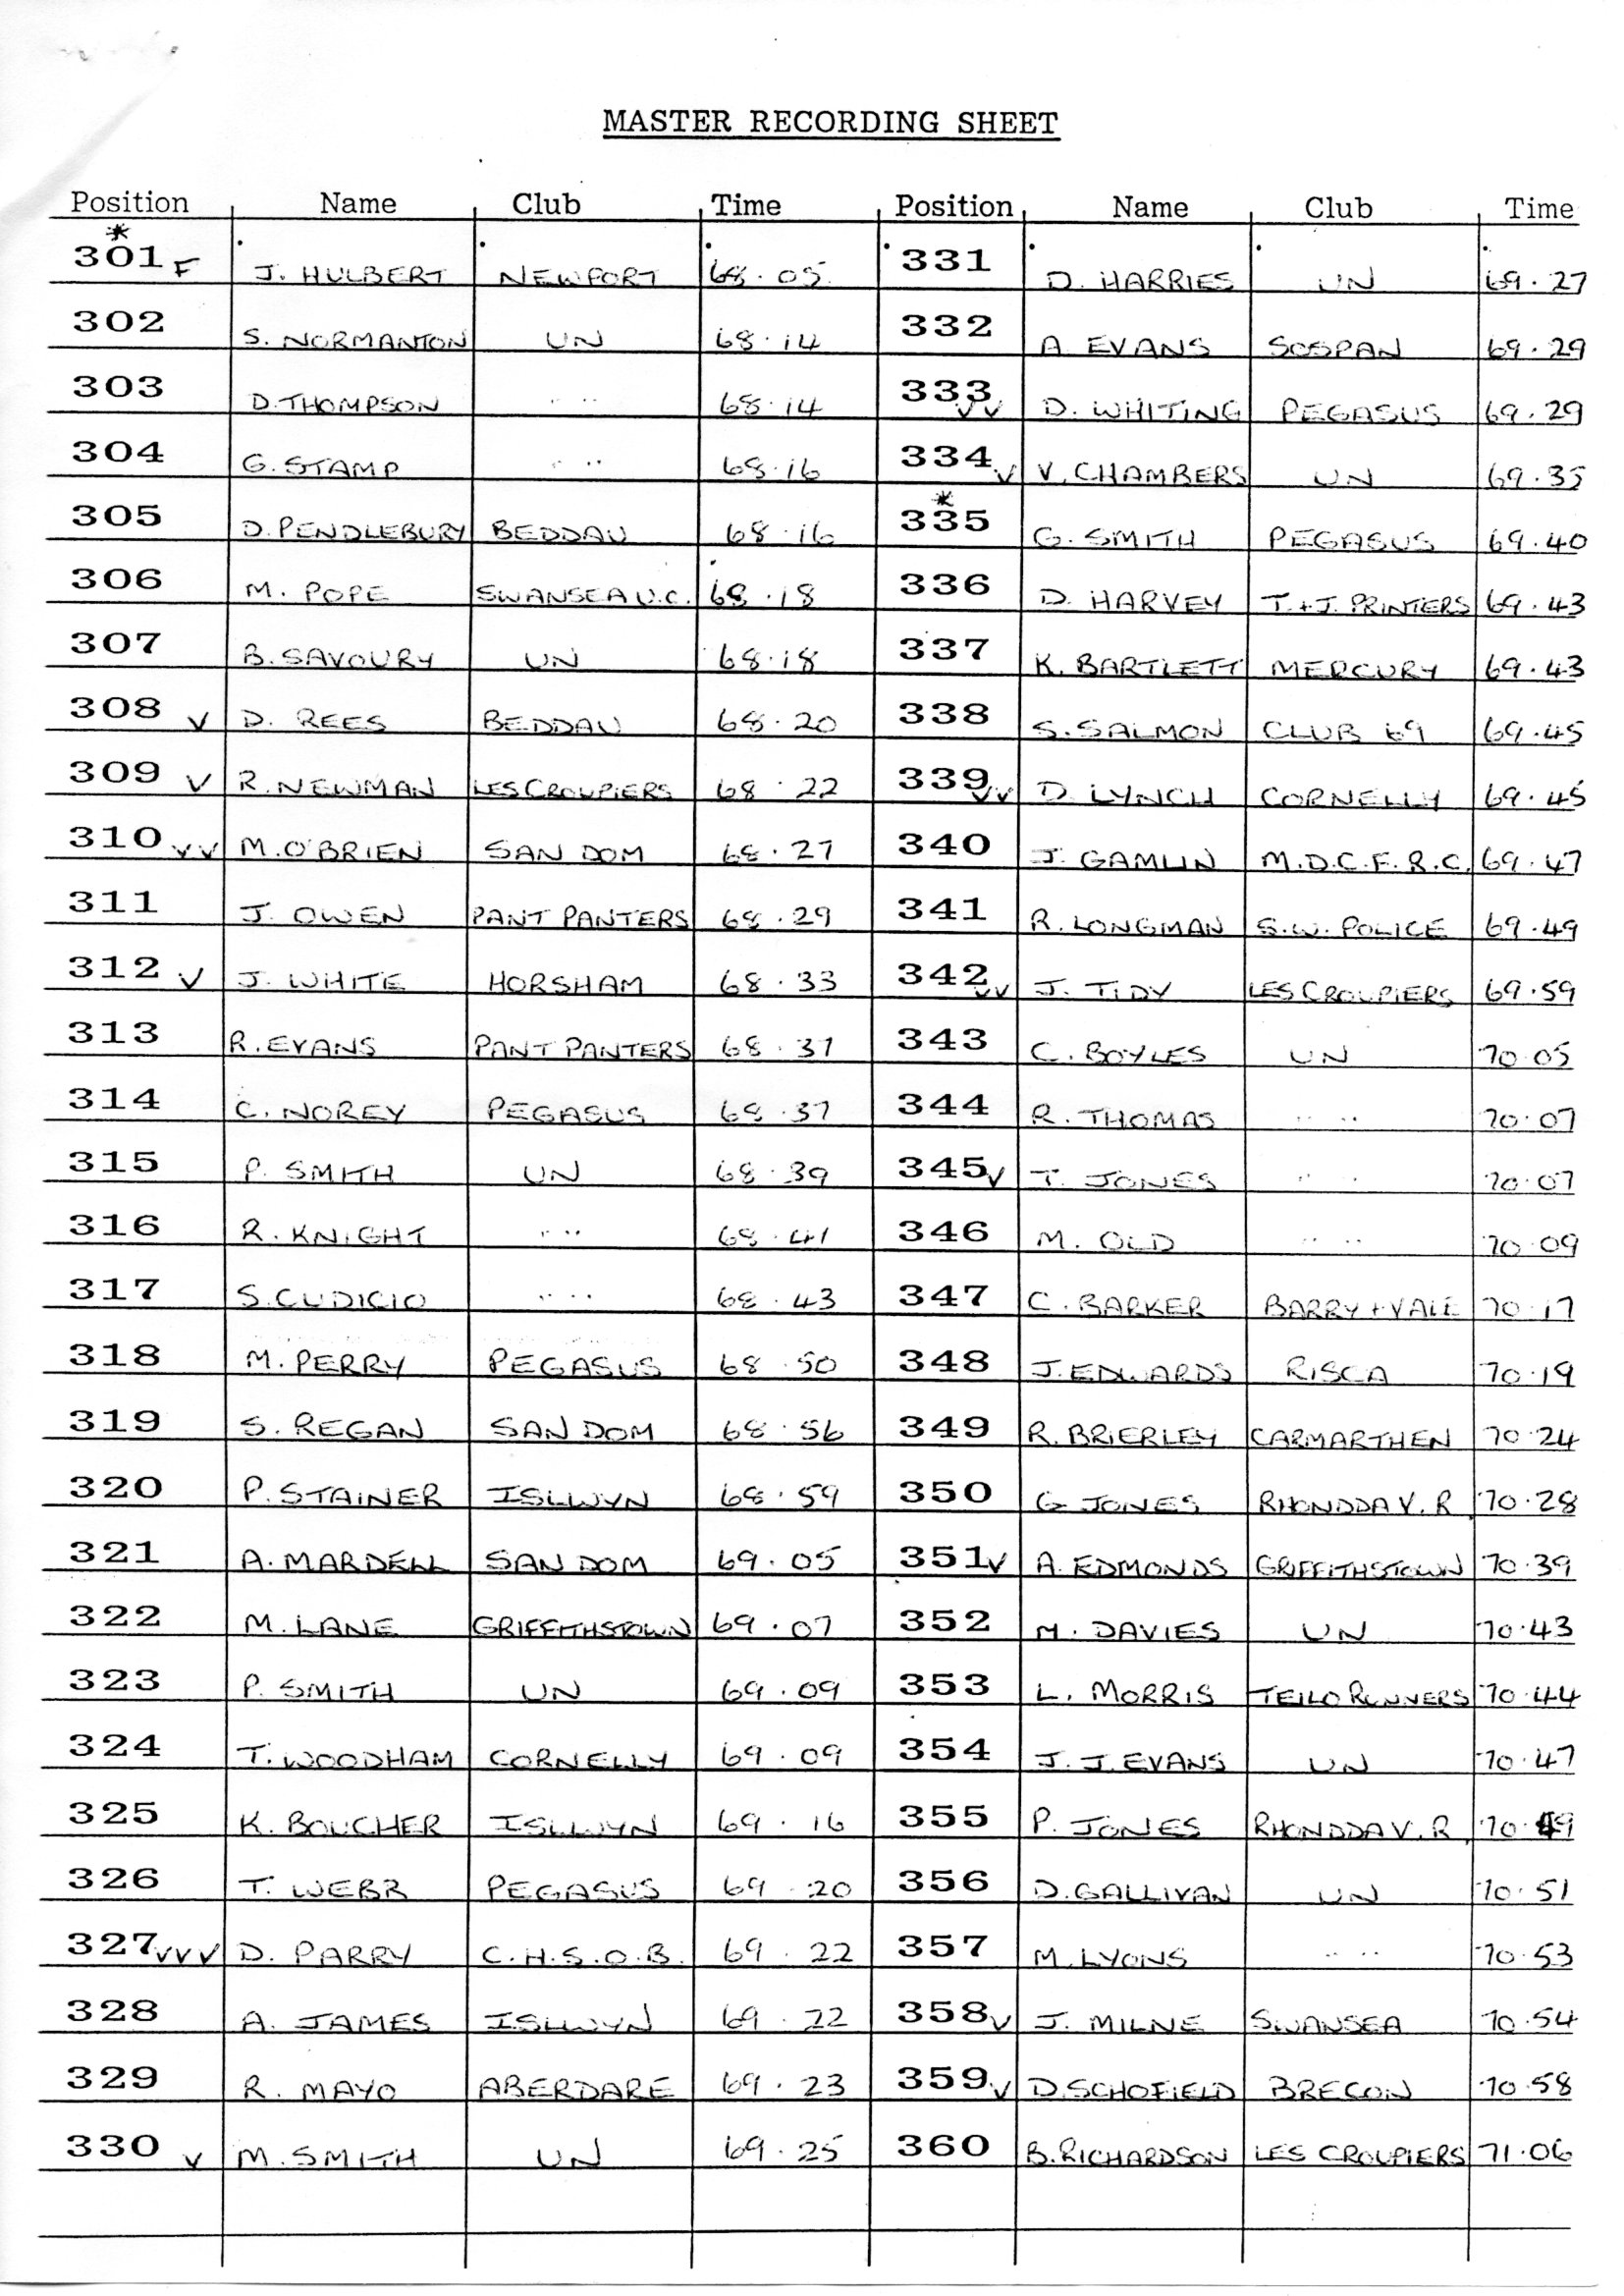 MASTER RECORDING SHEET
Position Name Club Time Position Name Club Time
*
301 F J. HULBERT NEWPORT 68.05 331 D. HARRIES UN 69.27
302 S. NORMANTON UN 68.14 332 A EVANS SOSPAN 69.29
303 D. THOMPSON " " 68.14 333 VV D. WHITING PEGASUS 69.29
304 G. STAMP " " 68.16 334 V V. CHAMBERS UN 69.35
*
305 D. PENDLEBURY BEDDAU 68.16 335 G. SMITH PEGASUS 69.40
306 M. POPE SWANSEA U.C. 68.18 336 D. HARVEY T.+J. PRINTERS 69.43
307 B. SAVOURY UN 68.18 337 K. BARTLETT MERCURY 69.43
308 V D. REES BEDDAU 68.20 338 S. SALMON CLUB 69 69.45
309 V R. NEWMAN LES CROUPIERS 68.22 339 VV D. LYNCH CORNELLY 69.45
310 VV M. O'BRIEN SAN DOM 68.27 340 J. GAMLIN M.D.C.F.R.C. 69.47
311 J. OWEN PANT PANTERS 68.29 341 R. LONGMAN S.W. POLICE 69.49
312 V J. WHITE HORSHAM 68.33 342 VV J. TIDY LES CROUPIERS 69.59
313 R. EVANS PANT PANTERS 68.37 343 C. BOYLES UN 70.05
314 C. NOREY PEGASUS 68.37 344 R. THOMAS " " 70.07
315 P. SMITH UN 68.39 345 V T. JONES " " 70.07
316 R. KNIGHT " " 68.41 346 M. OLD " " 70.09
317 S. CUDICIO " " 68.43 347 C. BARKER BARRY + VALE 70.17
318 M. PERRY PEGASUS 68.50 348 J. EDWARDS RISCA 70.19
319 S. REGAN SAN DOM 68.56 349 R. BRIERLEY CARMARTHEN 70.24
320 P. STAINER ISLWYN 68.59 350 G JONES RHONDDA V. R 70.28
321 A. MARDELL SAN DOM 69.05 351 V A. EDMONDS GRIFFITHSTOWN 70.39
322 M. LANE GRIFFITHSTOWN 69.07 352 M. DAVIES UN 70.43
323 P. SMITH UN 69.09 353 L. MORRIS TEILO RUNNERS 70.44
324 T. WOODHAM CORNELLY 69.09 354 J. J. EVANS UN 70.47
325 K. BOUCHER ISLWYN 69.16 355 P. JONES RHONDDA V. R 70.49
326 T. WEBB PEGASUS 69.20 356 D. GALLIVAN UN 70.51
327 VVV D. PARRY C.H.S.O.B. 69.22 357 M. LYONS " " 70.53
328 A. JAMES ISLWYN 69.22 358 V J. MILNE SWANSEA 70.54
329 R. MAYO ABERDARE 69.23 359 V D. SCHOFIELD BRECON 70.58
330 V M. SMITH UN 69.25 360 B. RICHARDSON LES CROUPIERS 71.06